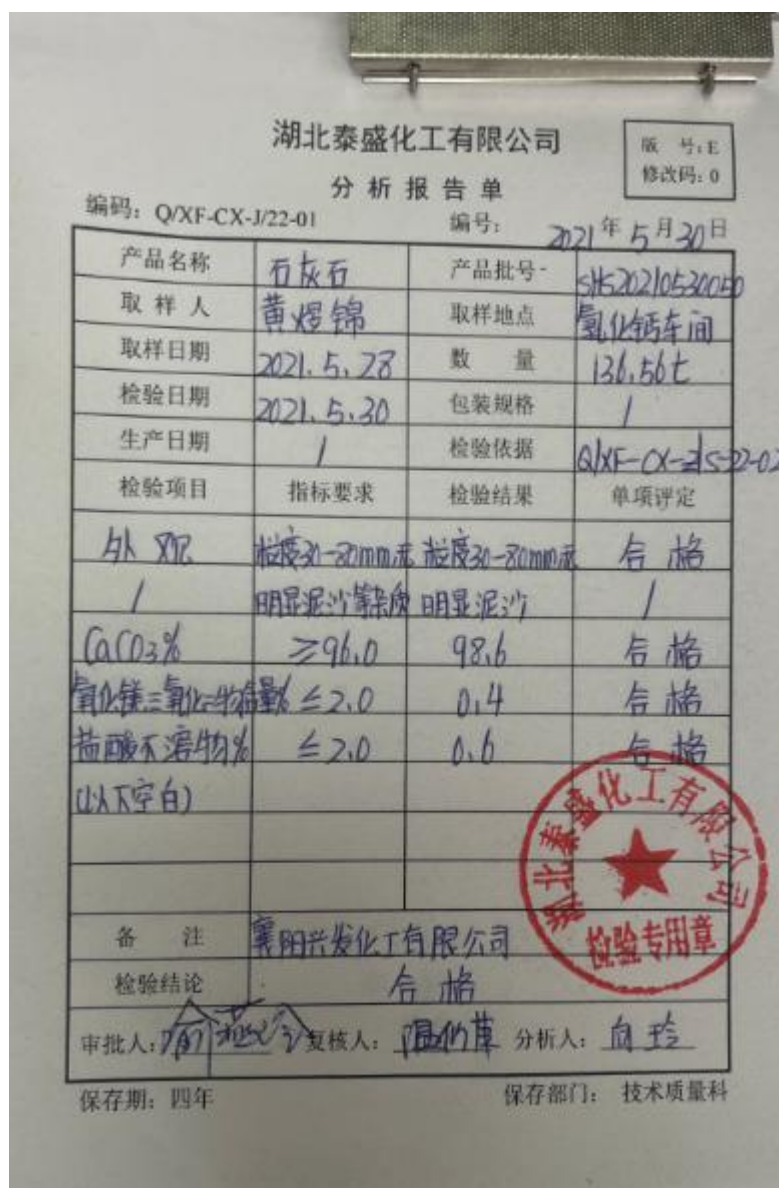 湖北泰盛化工有限公司
版 号:E
修改码:0
分析报告单
编码:Q/XF-CX-J/22-01 编号: 2021年5月30日
产品名称 石灰石 产品批号 SHS20210530050
取样人 黄煜锦 取样地点 氧化钙车间
取样日期 2021.5.28 数 量 136.56t
检验日期 2021.5.30 包装规格 /
生产日期 / 检验依据 Q/XF-CX-Z/S-22-02
检验项目 指标要求 检验结果 单项评定
外观 粒度30-80mm,无 粒度30-80mm,无 合格
/ 明显泥沙等杂质 明显泥沙 /
CaCO3% ≥96.0 98.6 合格
氧化镁三氧化二物含量% ≤2.0 0.4 合格
盐酸不溶物% ≤2.0 0.6 合格
(以下空白)
备 注 襄阳兴发化工有限公司
检验结论 合格
审批人: 复核人: 分析人: 向玲
湖北泰盛化工有限公司
检验专用章
保存期:四年 保存部门:技术质量科